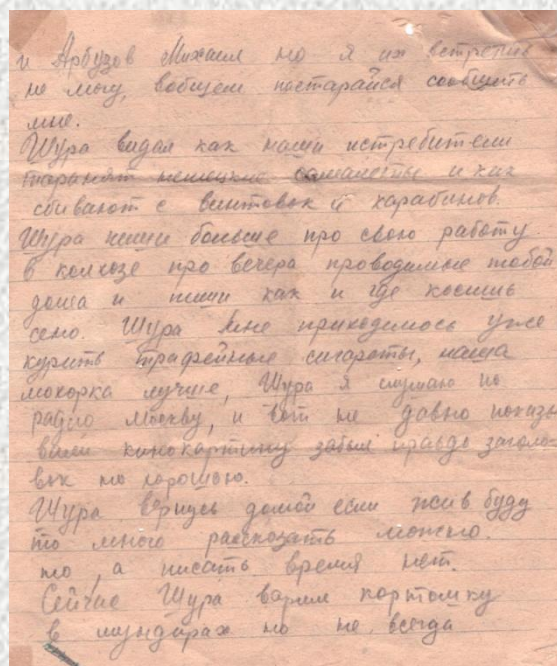 и Арбузов Михаил но я их встретить
не могу, вобщем постарайся сообщить
мне.
Шура видал как наши истребители
таранят немецкие самалеты и как
сбивают с винтовок и карабинов.
Шура пиши больше про свою работу
в колхозе про вечера проводимые тобой
дома и пиши как и где косишь
сено. Шура мне приходилось уже
курить трафейные сигареты, наша
махорка лучше, Шура я слушаю по
радио москву, и вот не давно показы
вали кинокартину забыл правда заголо-
вок но хорошую.
Шура вернусь домой если жив буду
то много рассказать можно.
то, а писать время нет.
Сейчас Шура варим картошку
в мундирах но не всегда